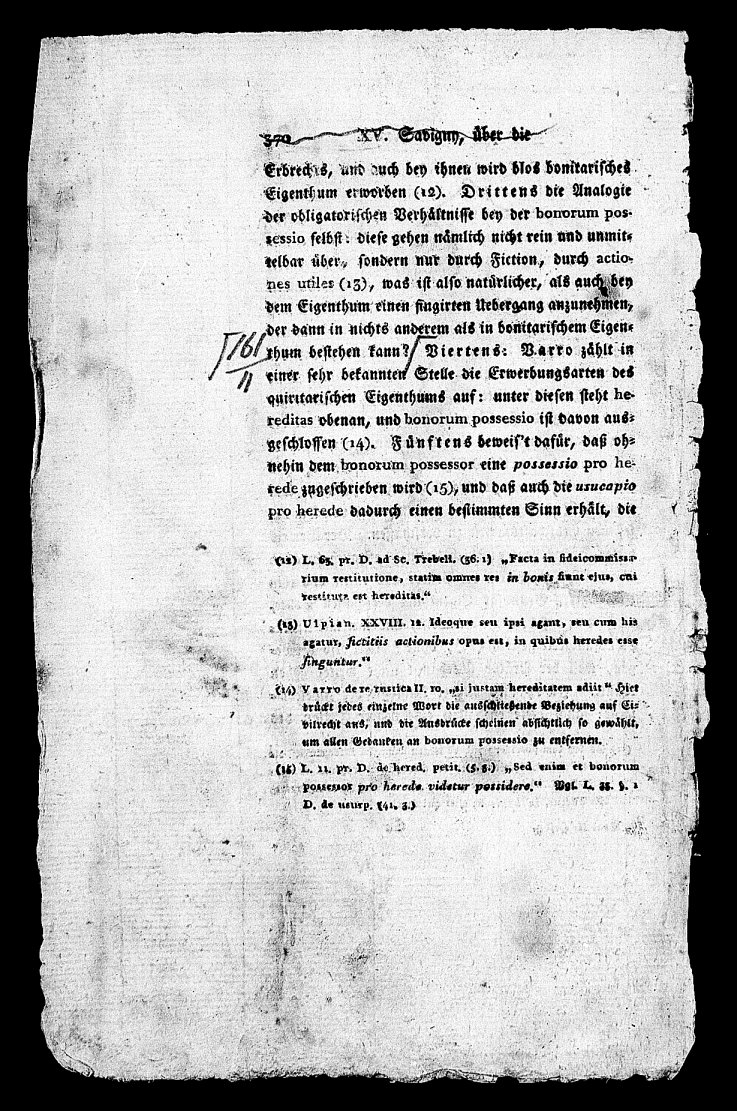 370 XV. Savigny, über die
Erbrechts, und auch bey ihnen wird blos bonitarisches
Eigenthum erworben (12). Drittens die Analogie
der obligatorischen Verhältnisse bey der bonorum pos-
sessio selbst: diese gehen nämlich nicht rein und unmit-
telbar über, sondern nur durch Fiction, durch actio-
nes utiles (13), was ist also natürlicher, als auch bey
dem Eigenthum einen fingirten Uebergang anzunehmen,
der dann in nichts anderem als in bonitarischem Eigen-
161
11
thum bestehen kann? Viertens: Varro zählt in
einer sehr bekannten Stelle die Erwerbungsarten des
quiritarischen Eigenthums auf: unter diesen steht he-
reditas obenan, und bonorum possessio ist davon aus-
geschlossen (14). Fünftens beweis't dafür, daß oh-
nehin dem bonorum possessor eine possessio pro he-
rede zugeschrieben wird (15), und daß auch die usucapio
pro herede dadurch einen bestimmten Sinn erhält, die
(12) L. 63. pr. D. ad Sc. Trebell. (36. 1) „Facta in fideicommissa-
rium restitutione, statim omnes res in bonis fiunt ejus, cui
restituta est hereditas.“
(13) Ulpian. XXVIII. 12. Ideoque seu ipsi agant, seu cum his
agatur, fictitiis actionibus opus est, in quibus heredes esse
finguntur.“
(14) Varro de re rustica II. 10. „si justam hereditatem adiit“ Hier
drückt jedes einzelne Wort die ausschließende Beziehung auf Ci-
vilrecht aus, und die Ausdrücke scheinen absichtlich so gewählt,
um allen Gedanken an bonorum possessio zu entfernen.
(15) L. 11. pr. D. de hered. petit. (5. 3.) „Sed enim et bonorum
possessor pro herede videtur possidere.“ Vgl. L. 33. §. 1
D. de usurp. (41. 3.)